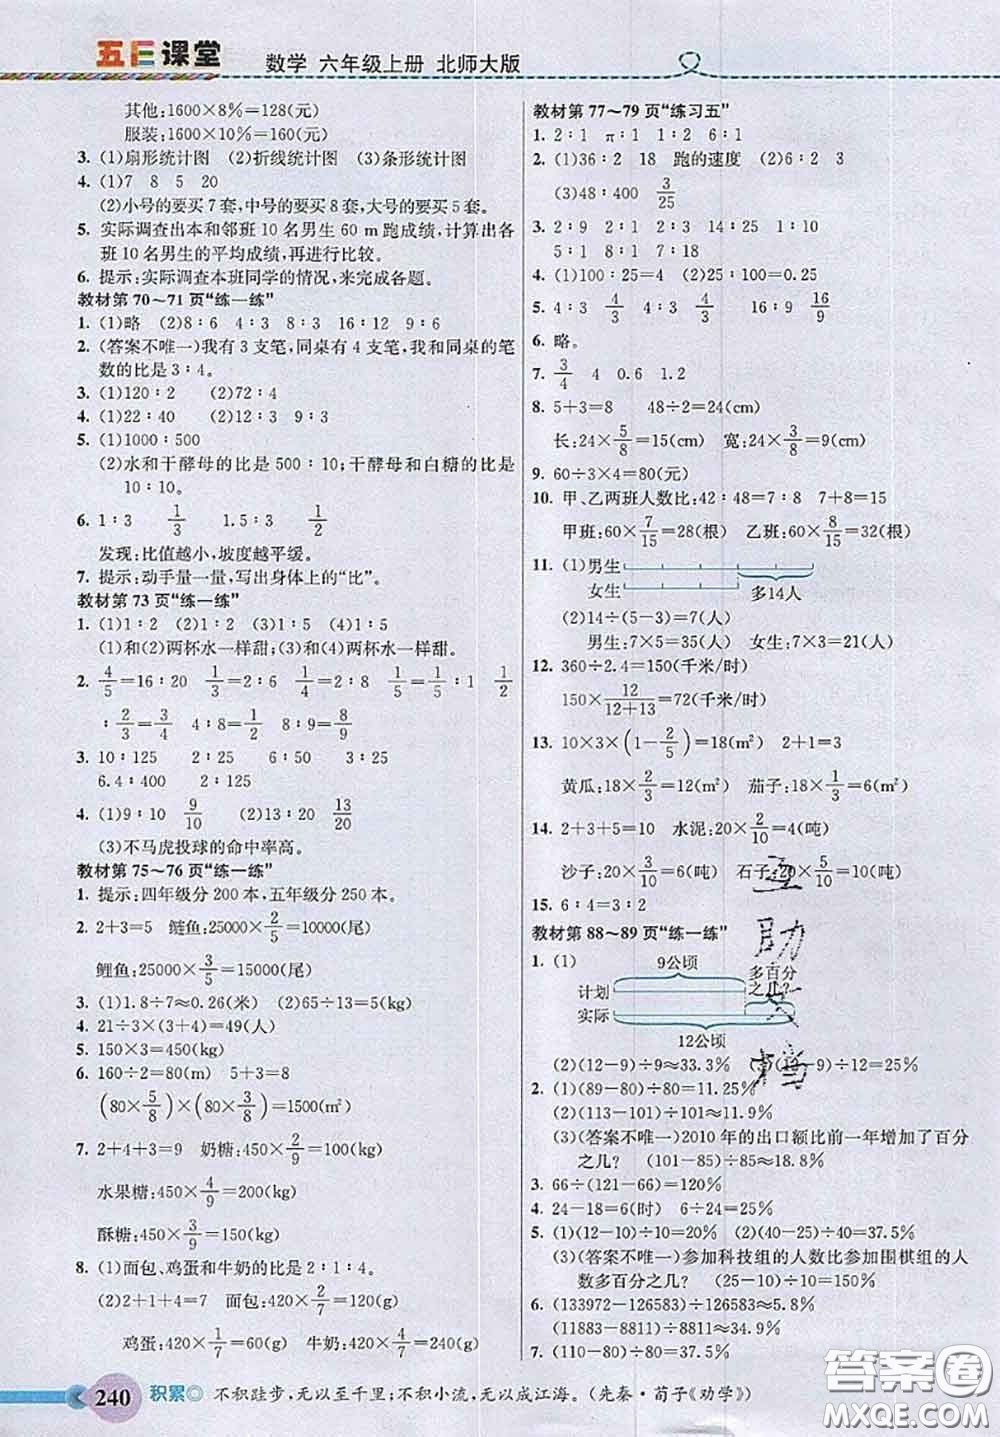 五E课堂 数学 六年级上册 北师大版
其他:1600×8%=128(元)
服装:1600×10%=160(元)
3. (1)扇形统计图 (2)折线统计图 (3)条形统计图
4. (1)7 8 5 20
(2)小号的要买7套,中号的要买8套,大号的要买5套。
5. 实际调查出本和邻班10名男生60 m跑成绩,计算出各
班10名男生的平均成绩,再进行比较。
6. 提示:实际调查本班同学的情况,来完成各题。
教材第70～71页“练一练”
1. (1)略 (2)8∶6 4∶3 8∶3 16∶12 9∶6
2. (答案不唯一)我有3支笔,同桌有4支笔,我和同桌的笔
数的比是3∶4。
3. (1)120∶2 (2)72∶4
4. (1)22∶40 (2)12∶3 9∶3
5. (1)1000∶500
(2)水和干酵母的比是500∶10;干酵母和白糖的比是
10∶10。
6. 1∶3 1/3 1.5∶3 1/2
发现:比值越小,坡度越平缓。
7. 提示:动手量一量,写出身体上的“比”。
教材第73页“练一练”
1. (1)1∶2 (2)1∶5 (3)1∶5 (4)1∶5
(1)和(2)两杯水一样甜;(3)和(4)两杯水一样甜。
2. 4/5=16∶20 1/3=2∶6 1/5∶1=1/5∶1 1/2
∶2/3=3/4 4∶8=1/2 8∶9=8/9
3. 10∶125 2∶25 6∶50 3∶25
6.4∶400 2∶125
4. (1)9∶10 9/10 (2)13∶20 13/20
(3)不马虎投球的命中率高。
教材第75～76页“练一练”
1. 提示:四年级分200本,五年级分250本。
2. 2+3=5 鲢鱼:25000×2/5=10000(尾)
鲤鱼:25000×3/5=15000(尾)
3. (1)1.8÷7≈0.26(米) (2)65÷13=5(kg)
4. 21÷3×(3+4)=49(人)
5. 150×3=450(kg)
6. 160÷2=80(m) 5+3=8
(80×5/8)×(80×3/8)=1500(m²)
7. 2+4+3=9 奶糖:450×2/9=100(kg)
水果糖:450×4/9=200(kg)
酥糖:450×3/9=150(kg)
8. (1)面包、鸡蛋和牛奶的比是2∶1∶4。
(2)2+1+4=7 面包:420×2/7=120(g)
鸡蛋:420×1/7=60(g) 牛奶:420×4/7=240(g)
教材第77～79页“练习五”
1. 2∶1 π∶1 6∶2 6∶1
2. (1)36∶2 18 跑的速度 (2)6∶2 3
(3)48∶400 3/25
3. 2∶9 2∶1 7∶1 4∶21
5∶1 8∶1 7∶18
4. (1)100∶25=4 (2)25∶100=0.25
5. 4∶3 4/3 4∶3 4/3 16∶9 16/9
6. 略。
7. 3/4 4 0.6 1.2
8. 5+3=8 48÷2=24(cm)
长:24×5/8=15(cm) 宽:24×3/8=9(cm)
9. 60÷3×4=80(元)
10. 甲、乙两班人数比:42∶48=7∶8 7+8=15
甲班:60×7/15=28(根) 乙班:60×8/15=32(根)
11. (1)男生
女生 多14人
(2)14÷(5-3)=7(人)
男生:7×5=35(人) 女生:7×3=21(人)
12. 360÷2.4=150(千米/时)
150×12/(12+13)=72(千米/时)
13. 10×3×(1-2/5)=18(m²) 2+1=3
黄瓜:18×2/3=12(m²) 茄子:18×1/3=6(m²)
14. 2+3+5=10 水泥:20×2/10=4(吨)
沙子:20×3/10=6(吨) 石子:20×5/10=10(吨)
15. 6∶4=3∶2
教材第88～89页“练一练”
1. (1) 9公顷 多百分之几?
计划
实际
12公顷
(2)(12-9)÷9≈33.3% (3)(12-9)÷12=25%
2. (1)(89-80)÷80=11.25%
(2)(113-101)÷101≈11.9%
(3)(答案不唯一)2010年的出口额比前一年增加了百分
之几? (101-85)÷85≈18.8%
3. 66÷(121-66)=120%
4. 24-18=6(时) 6÷24=25%
5. (1)(12-10)÷10=20% (2)(40-25)÷40=37.5%
(3)(答案不唯一)参加科技组的人数比参加围棋组的人
数多百分之几? (25-10)÷10=150%
6. (133972-126583)÷126583≈5.8%
(11883-8811)÷8811≈34.9%
7. (110-80)÷80=37.5%
240 积累◎ 不积跬步,无以至千里;不积小流,无以成江海。(先秦·荀子《劝学》)
答案圈
MXQE.COM